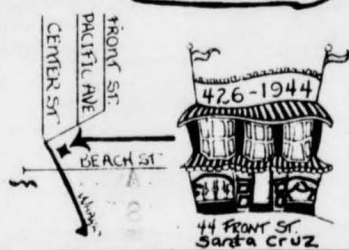 FRONT ST.
PACIFIC AVE
CENTER ST
BEACH ST
426-1944
44 FRONT ST.
Santa Cruz